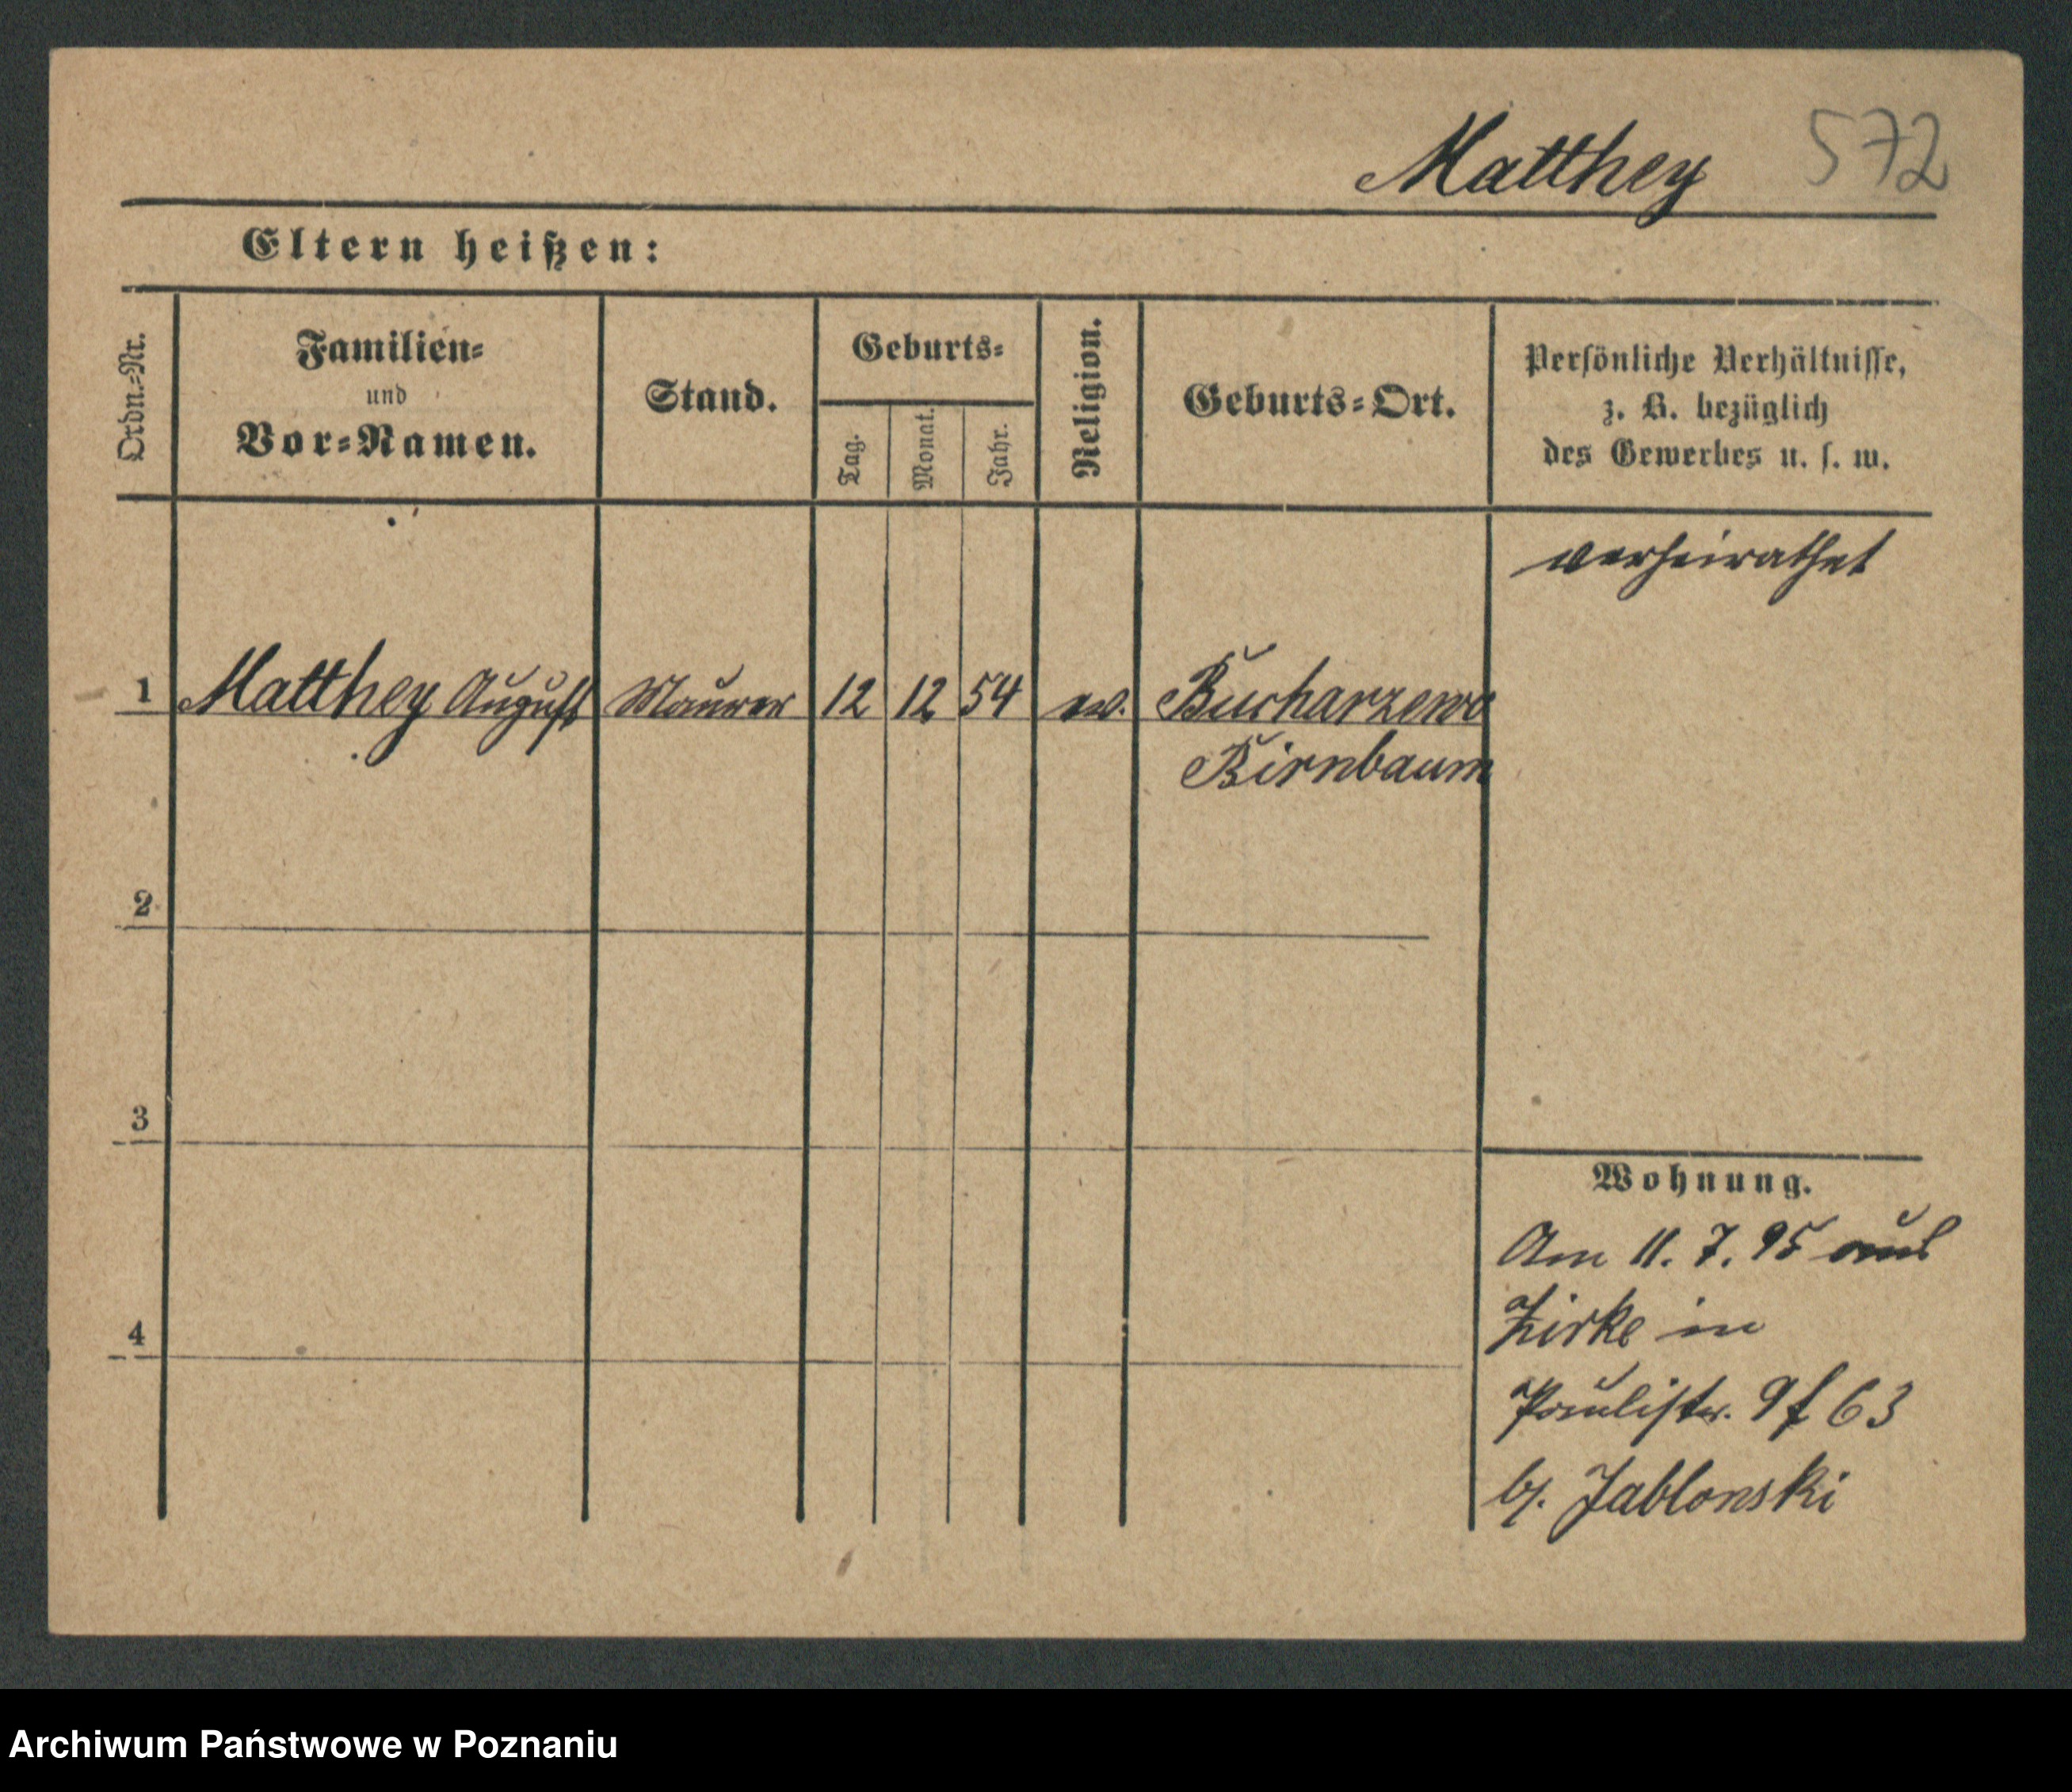 Matthey 572
Eltern heißen:
Ordn.=Nr.
Familien=
und
Vor=Namen.
Stand.
Geburts=
Tag.
Monat.
Jahr.
Religion.
Geburts=Ort.
Persönliche Verhältnisse,
z. B. bezüglich
des Gewerbes u. s. w.
verheirathet
1 Matthey August Maurer 12 12 54 ev. Bucharzewo
Birnbaum
2
3
4
Wohnung.
Am 11. 7. 95 aus
Zirke in
Paulistr. 9 f 63
b/. Jablonski
Archiwum Państwowe w Poznaniu